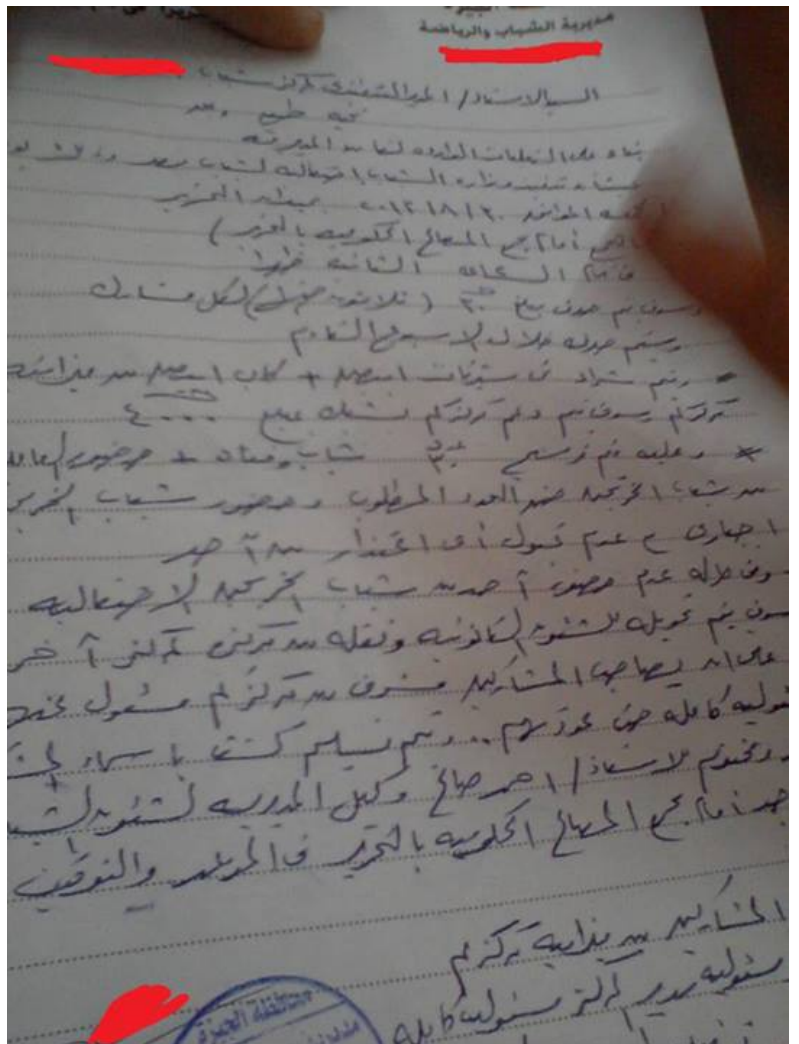 مديرية الشباب والرياضة
السيد الاستاذ / المدير التنفيذى لمركز شباب
تحية طيبة وبعد
بناء على التعليمات الواردة لنا من المديرية
بشأن تنفيذ وزارة الشباب احتفالية لشباب مصر وذلك
الموافق ٢٠١٢/٨/٣٠ بميدان التحرير
أمام مجمع المصالح الحكومية بالتحرير )
فى تمام الساعة الثانية ظهرا
وسوف يتم صرف مبلغ ٣٠ ( ثلاثون جنيها ) لكل مشارك
وسيتم صرفه خلال الاسبوع القادم
من ميزانية
مركزكم وسوف يتم دعم مركزكم بشيك مبلغ ٤٠٠٠
* وعليه تم ترشيح عدد ٣٠ شاب وفتاة +
من شباب الخريجين ضمن العدد المطلوب وحضور شباب الخريجين
اجبارى مع عدم قبول أى اعتذار من أحد
وفى حالة عدم حضور أحد من شباب الخريجين الاحتفالية
سوف يتم تحويله للشئون القانونية ونقله من مركزى لمركز آخر
على ان يصاحب المشاركين مشرف من مركزكم مسئول عنهم
مسئولية كاملة حتى عودتهم .. ويتم تسليم كشف باسماء
للاستاذ / احمد صالح وكيل المديرية لشئون
أمام مجمع المصالح الحكومية بالتحرير فى الموعد والتوقيت
المشاركين من بداية مركزكم
مسئولية مدير المركز مسئولية كاملة
محافظة الجيزة